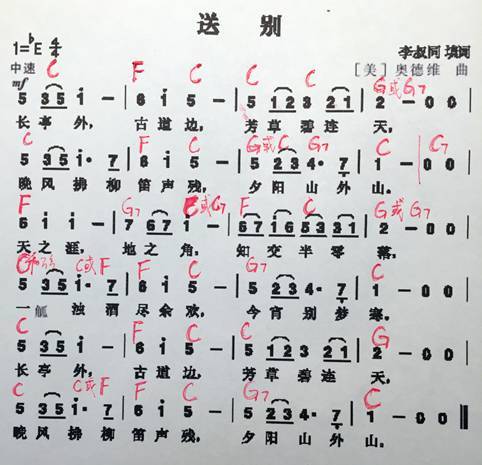 送 别
1=♭E 4/4
李叔同 填词
中速 C F C C G或G7
[美] 奥德维 曲
mf
5 3 5 i − | 6 i 5 − | 5 1 2 3 2 1 | 2 − 0 0 |
长亭外， 古道边， 芳草碧连 天，
C F C C
5 3 5 i· 7 | 6 i 5 − | 5 2 3 4· 7 | 1 − 0 0 |
晚风拂柳 笛声残， 夕阳山外 山。
F F G7 F C G或G7
6 i i − | 7 6 7 i − | 2 − 0 0 |
天之涯， 地之角， 知交半零 落，
C或F F C G7 C
5 3 5 i· 7 | 6 i 5 − | 5 2 3 4· 7 | 1 − 0 0 |
一觚浊酒 尽余欢， 今宵别梦 寒。
C F C C G
5 3 5 i − | 6 i 5 − | 5 1 2 3 2 1 | 2 − 0 0 |
长亭外， 古道边， 芳草碧连 天，
C C或F F C G7 C
5 3 5 i· 7 | 6 i 5 − | 5 2 3 4· 7 | 1 − 0 0 ‖
晚风拂柳 笛声残， 夕阳山外 山。